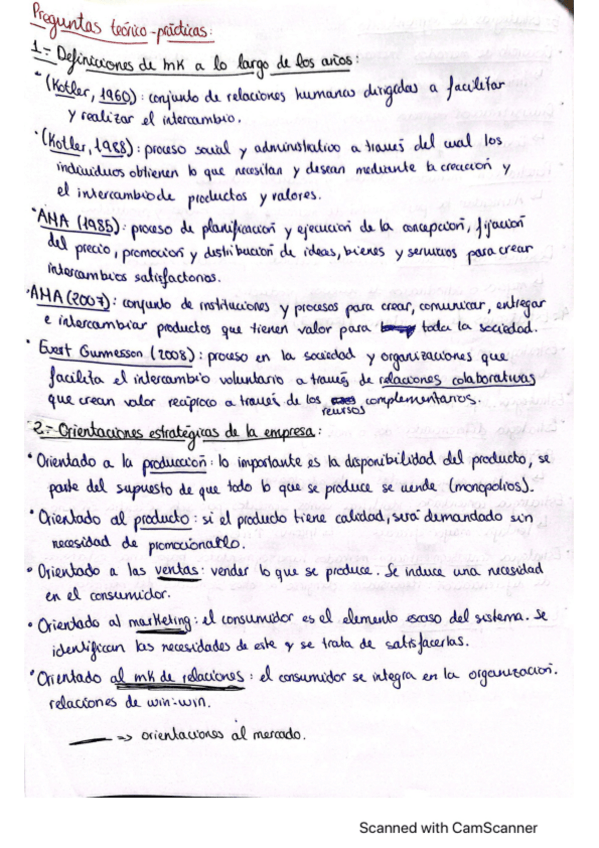 Preguntas teórico-prácticas:
1.- Definiciones de mK a lo largo de los años:
· (Kotler, 1960): conjunto de relaciones humanas dirigidas a facilitar
y realizar el intercambio.
· (Kotler, 1988): proceso social y administrativo a través del cual los
individuos obtienen lo que necesitan y desean mediante la creación y
el intercambio de productos y valores.
· AMA (1985): proceso de planificación y ejecución de la concepción, fijación
del precio, promoción y distribución de ideas, bienes y servicios para crear
intercambios satisfactorios.
· AMA (2007): conjunto de instituciones y procesos para crear, comunicar, entregar
e intercambiar productos que tienen valor para toda la sociedad.
· Evest Gunmesson (2008): proceso en la sociedad y organizaciones que
facilita el intercambio voluntario a través de relaciones colaborativas
que crean valor recíproco a través de los recursos complementarios.
2.- Orientaciones estratégicas de la empresa:
· Orientado a la producción: lo importante es la disponibilidad del producto, se
parte del supuesto de que todo lo que se produce se vende (monopolios).
· Orientado al producto: si el producto tiene calidad, será demandado sin
necesidad de promocionarlo.
· Orientado a las ventas: vender lo que se produce. Se induce una necesidad
en el consumidor.
· Orientado al marketing: el consumidor es el elemento escaso del sistema. Se
identifican las necesidades de este y se trata de satisfacerlas.
· Orientado al mK de relaciones: el consumidor se integra en la organización.
relaciones de win-win.
=> orientaciones al mercado.
Scanned with CamScanner